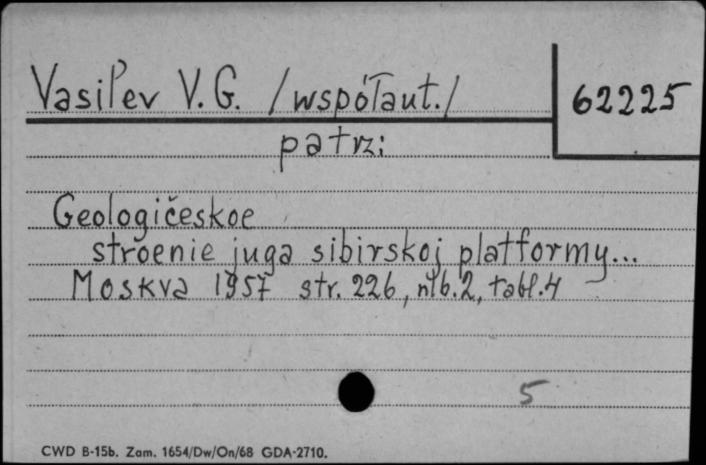 Vasil'ev V.G. /współaut./
62225
patrz:
Geologičeskoe
stroenie juga sibirskoj platformy...
Moskva 1957 str. 226, nlb.2, tabl.4
5
CWD B-15b. Zam. 1654/Dw/On/68 GDA-2710.